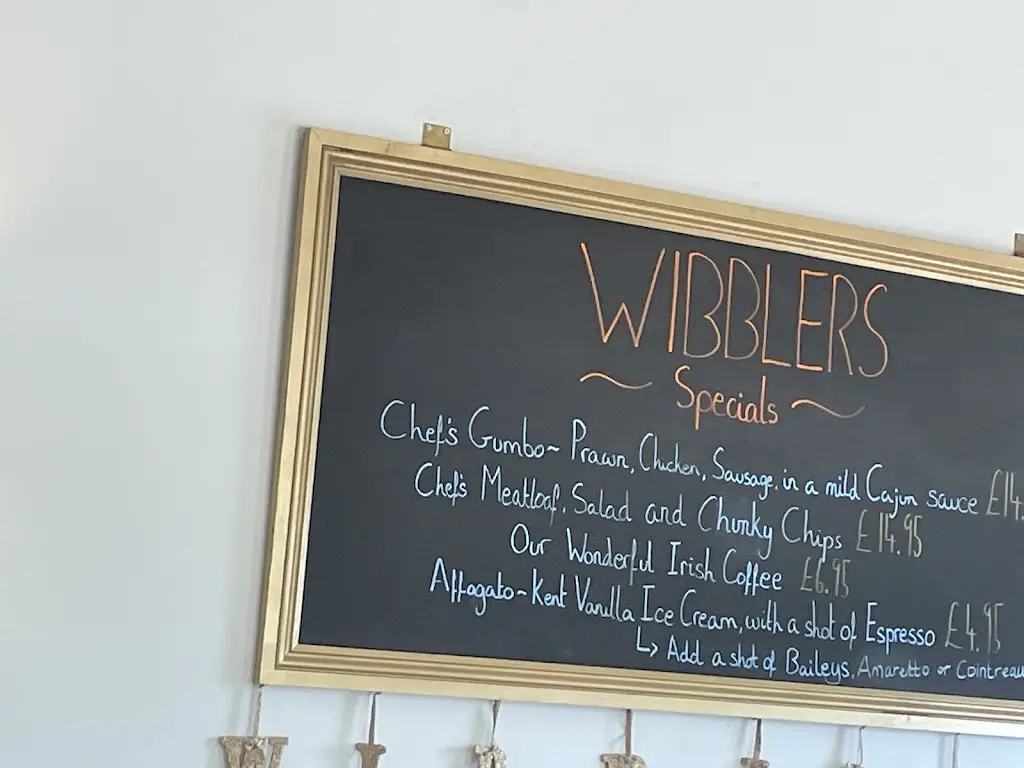 WIBBLERS
~ Specials ~
Chef's Gumbo ~ Prawn, Chicken, Sausage, in a mild Cajun sauce £14.
Chef's Meatloaf, Salad and Chunky Chips £14.95
Our Wonderful Irish Coffee £6.95
Affagato ~ Kent Vanilla Ice Cream, with a shot of Espresso £4.95
↳ Add a shot of Baileys, Amaretto or Cointreau